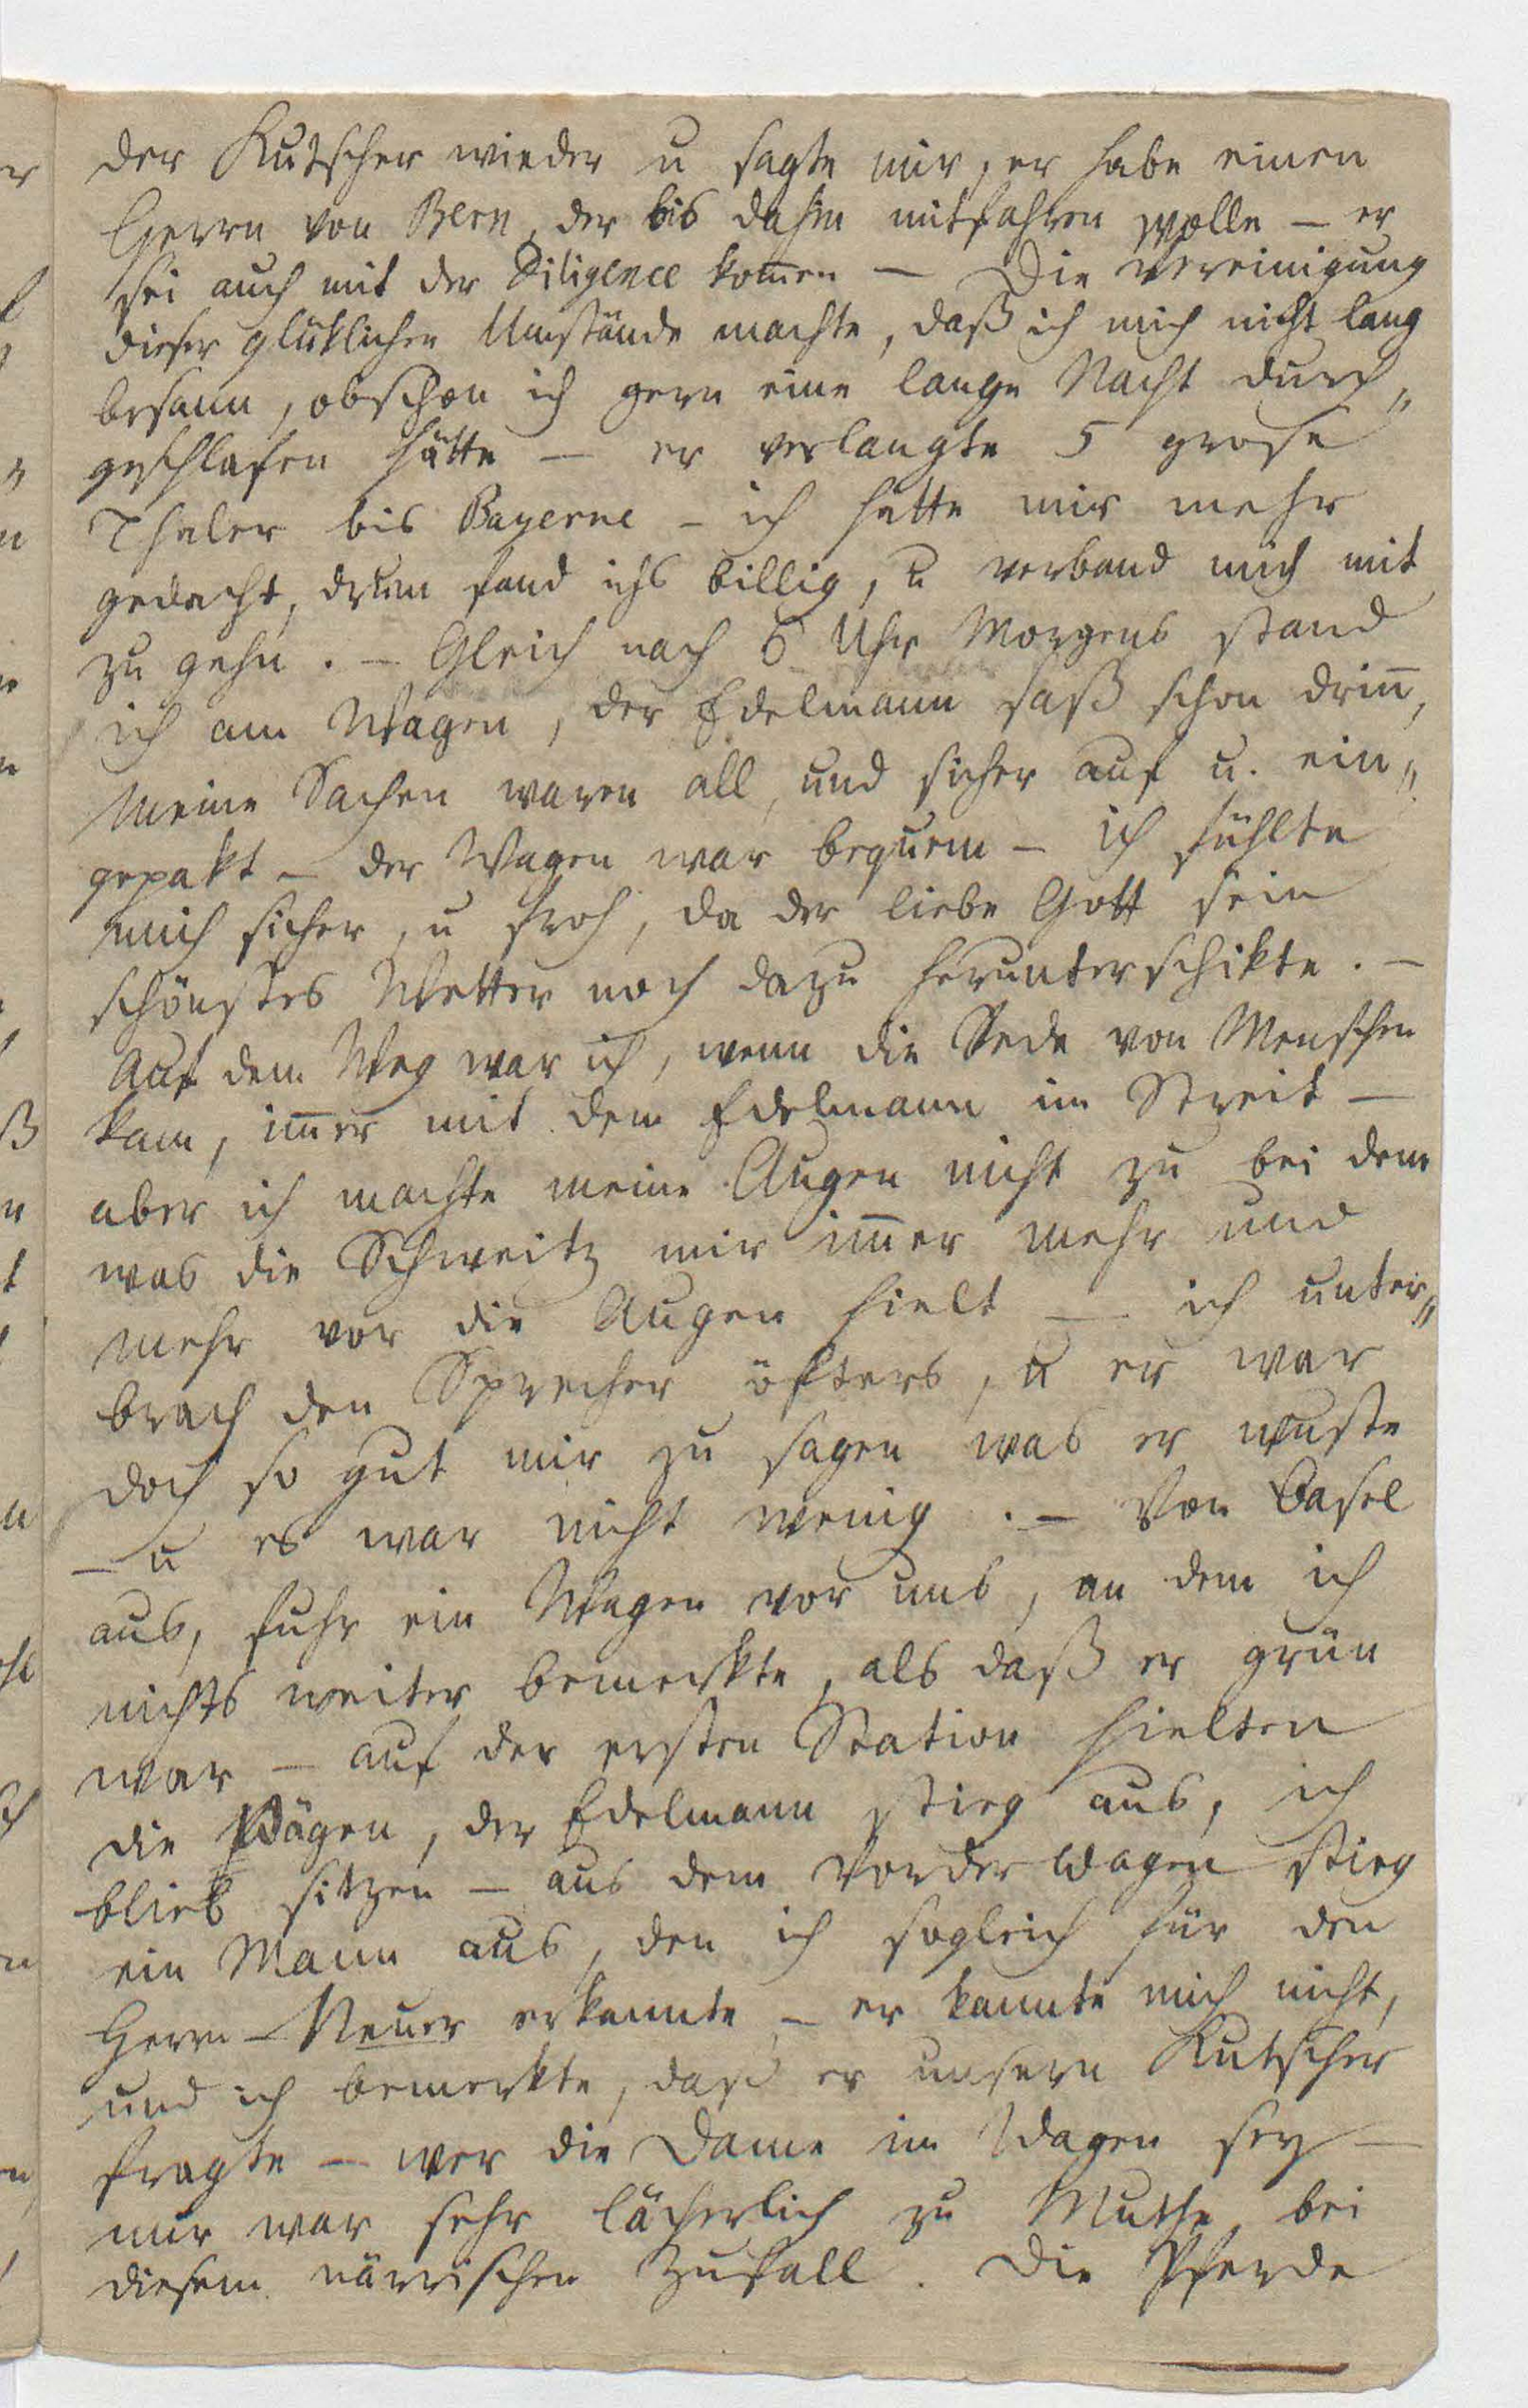 der Kutscher wieder u sagte mir, er habe einen
Herrn von Bern, der bis dahin mitfahren wolle – er
sei auch mit der Diligence kom̅en – Die Vereinigung
dieser glüklichen Umstände machte, daß ich mich nicht lang
besann, obschon ich gern eine lange Nacht durch„
geschlafen hätte – er verlangte 5 grose
Thaler bis Payerne – ich hatte mir mehr
gedacht, drum fand ichs billig, u verband mich mit
zu gehn. – Gleich nach 6 Uhr Morgens stand
ich am Wagen, der Edelmann saß schon drin̅,
meine Sachen waren all, und sicher auf u. ein„
gepakt – der Wagen war bequem – ich fühlte
mich sicher, u froh, da der liebe Gott sein
schönstes Wetter noch dazu herunterschikte. –
Auf dem Weg war ich, wenn die Rede von Menschen
kam, im̅er mit dem Edelmann im Streit –
aber ich machte meine Augen nicht zu bei dem
was die Schweitz mir im̅er mehr und
mehr vor die Augen hielt – ich unter„
brach den Sprecher öfters, u er war
doch so gut mir zu sagen was er wuste
– u es war nicht wenig. – Von Basel
aus, fuhr ein Wagen vor uns, an dem ich
nichts weiter bemerkte, als daß er grün
war – auf der ersten Station hielten
die Wägen, der Edelmann stieg aus, ich
blieb sitzen – aus dem Vorderwagen stieg
ein Mann aus, den ich sogleich für den
Herrn Neuer erkannte – er kannte mich nicht,
und ich bemerkte, daß er unsern Kutscher
fragte – wer die Dame im Wagen sey –
mir war sehr lächerlich zu Muthe, bei
diesem närrischen Zufall. Die Pferde